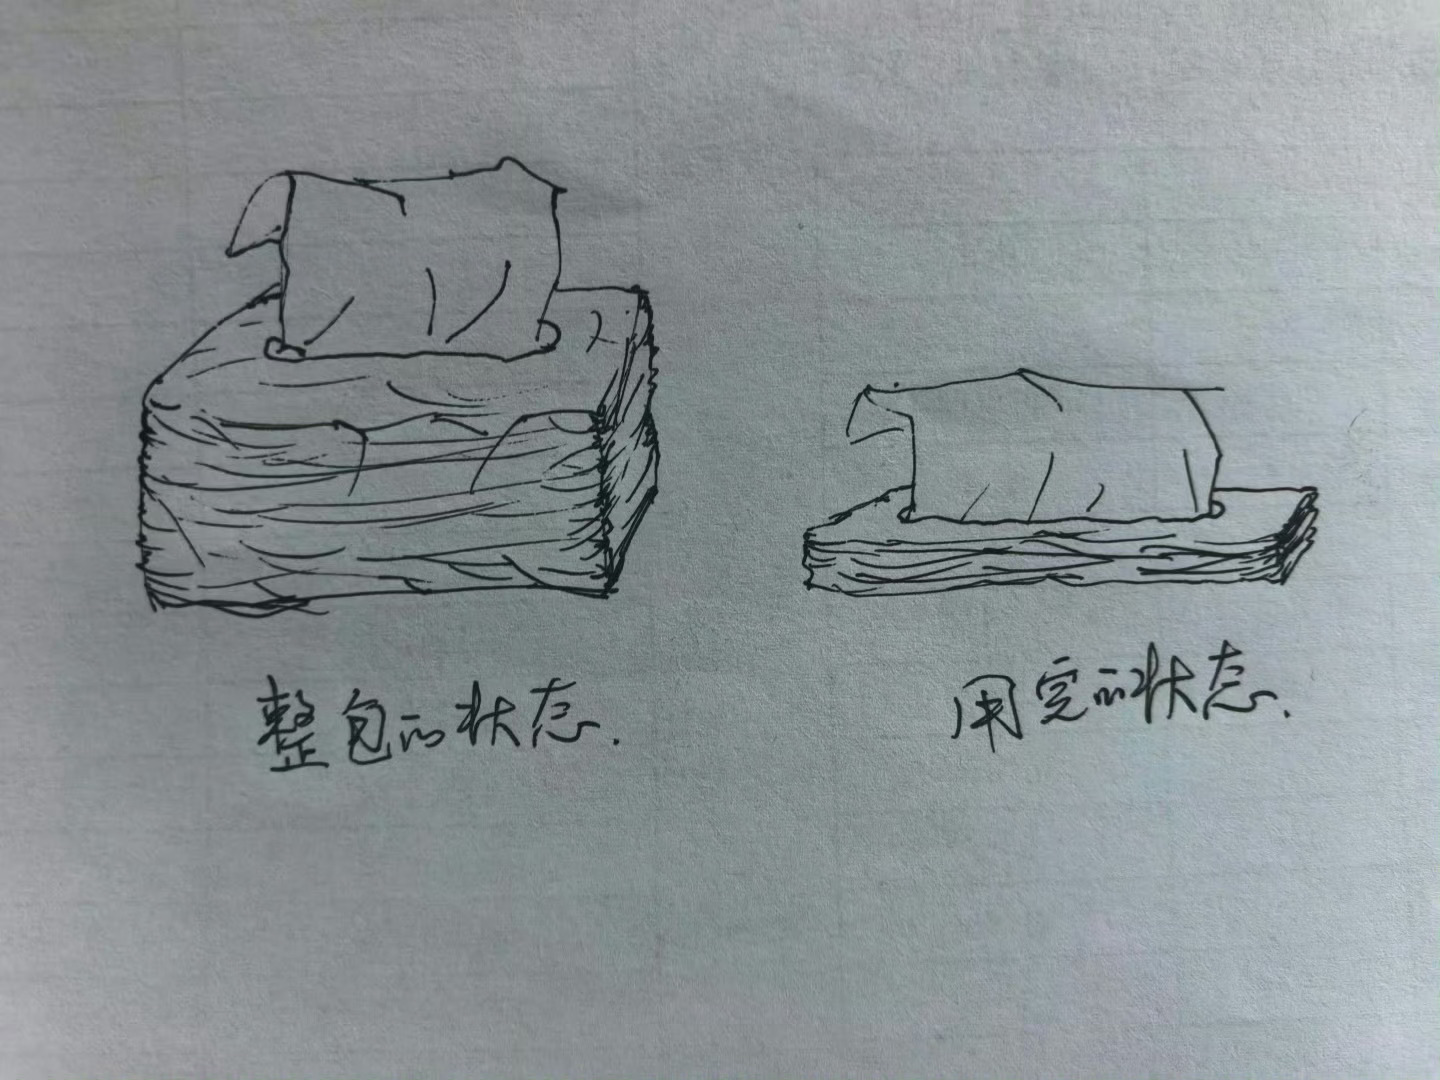 整包的状态.
用完的状态.